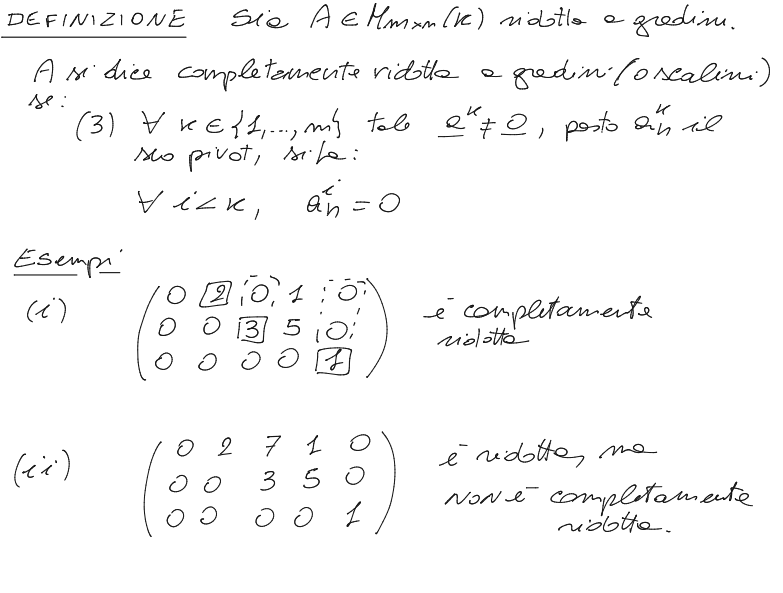 DEFINIZIONE Sia A ∈ Mm×n(K) ridotta a gradini.
A si dice completamente ridotta a gradini (o scalini)
se:
(3) ∀ k ∈ {1,...,m} tale a^k ≠ 0, posto a^k_h il
suo pivot, si ha:
∀ i < k, a^i_h = 0
Esempi
(i) ( 0 2 0 1 0
0 0 3 5 0
0 0 0 0 1 ) è completamente
ridotta
(ii) ( 0 2 7 1 0
0 0 3 5 0
0 0 0 0 1 ) è ridotta, ma
NON è completamente
ridotta.